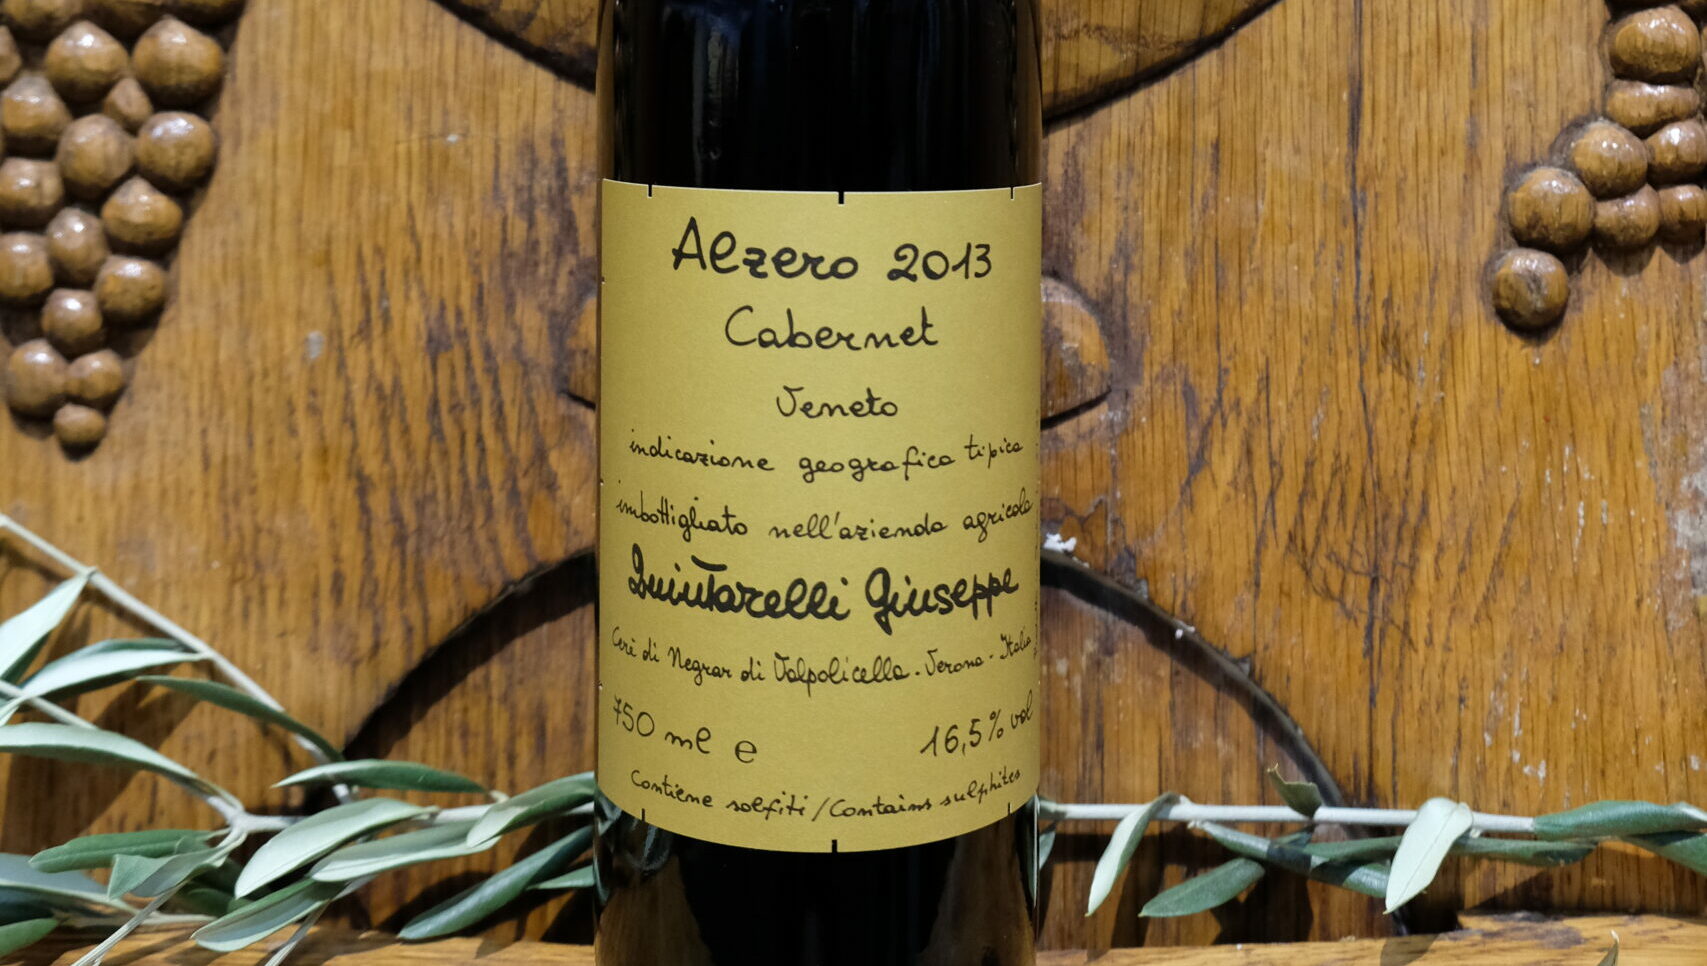 Alzero 2013
Cabernet
Veneto
indicazione geografica tipica
imbottigliato nell'azienda agricola
Quintarelli Giuseppe
Cerè di Negrar di Valpolicella - Verona - Italia
750 ml e 16,5% vol
Contiene solfiti / Contains sulphites